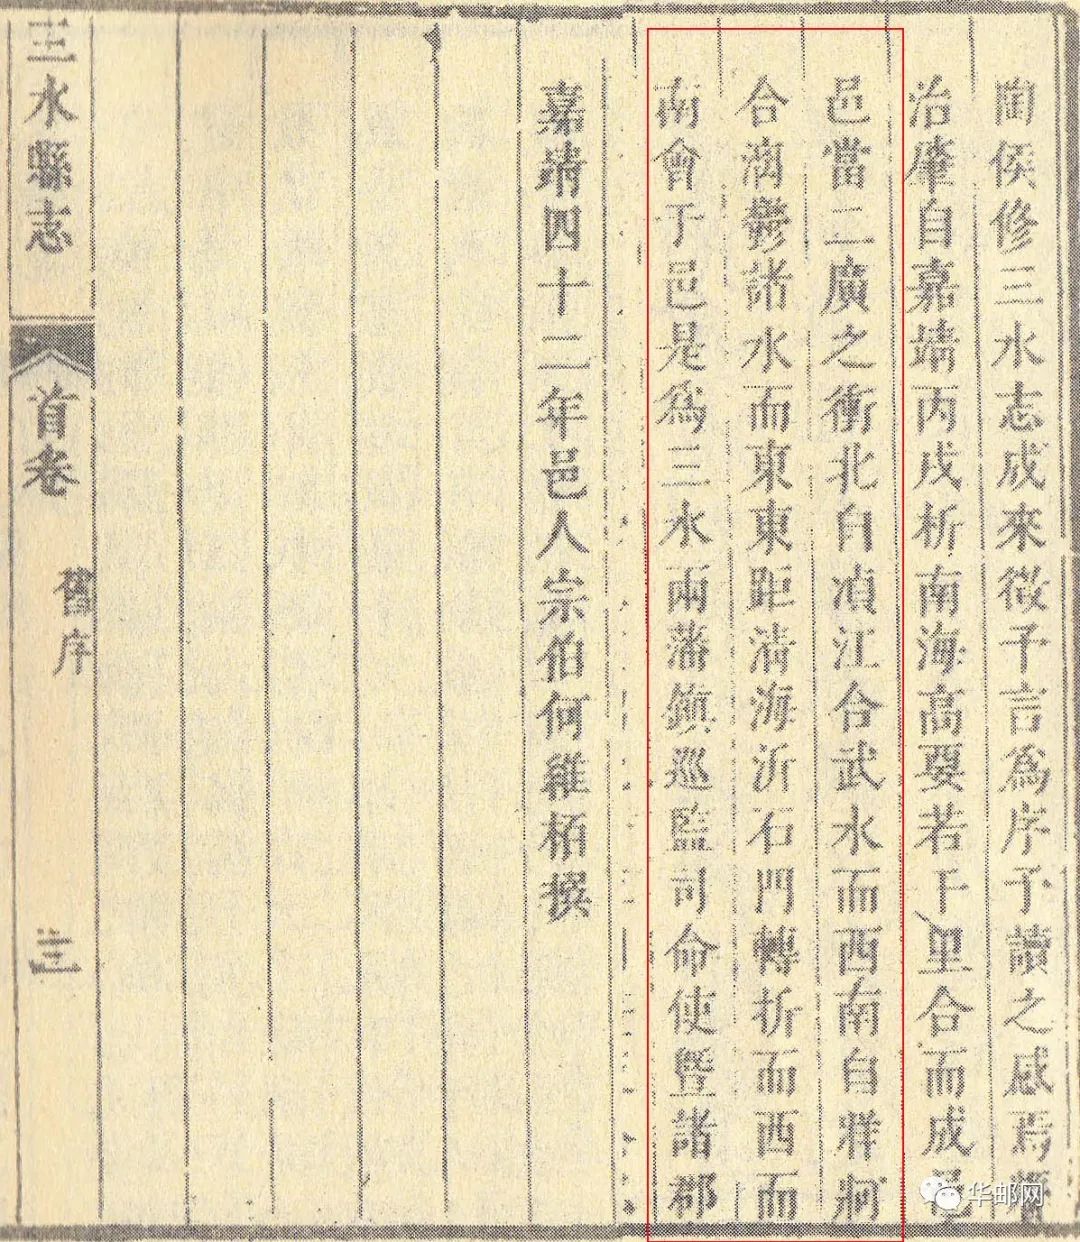 陶侯修三水志成來徵予言爲序予讀之感焉
治肇自嘉靖丙戌析南海高要若干里合而成邑
邑當二廣之衝北自湞江合武水而西南自牂牁
合漓鬱諸水而東東距清海沂石門轉折而西而
南會于邑是爲三水兩藩鎮巡監司命使曁諸郡
嘉靖四十二年邑人宗伯何維栢撰
三水縣志
首卷
舊序
三
华邮网